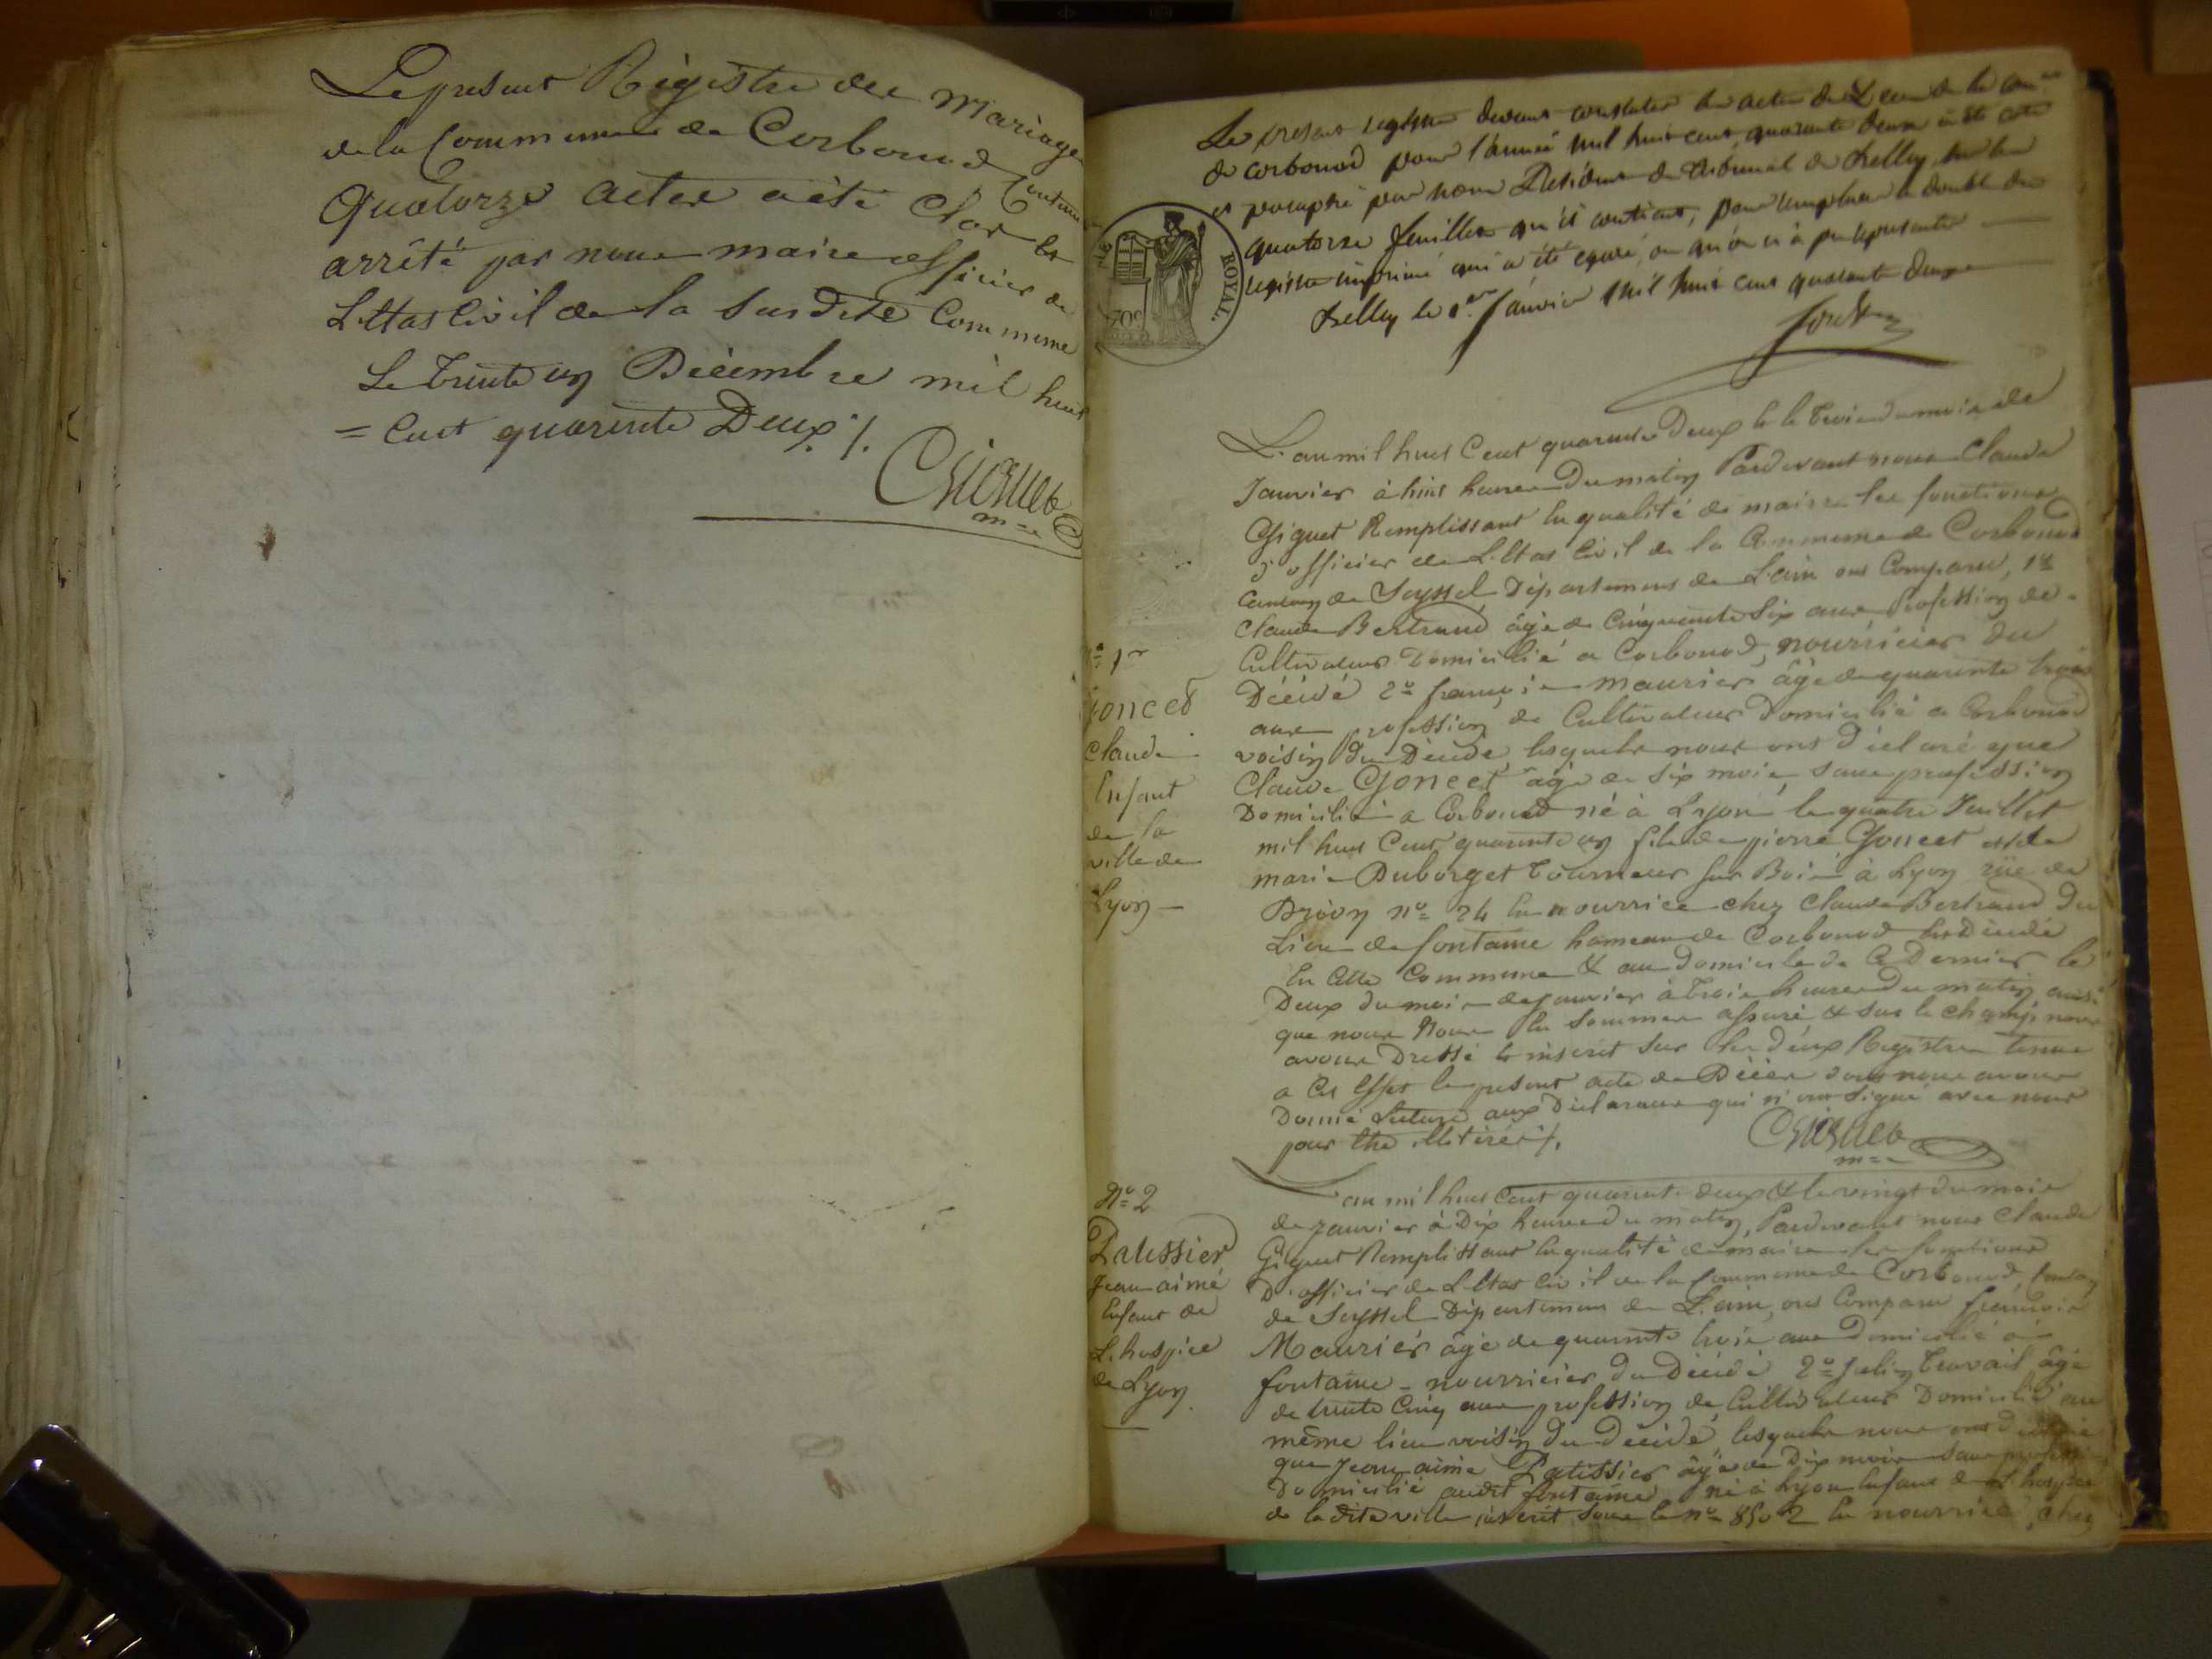 Le present Régistre des Mariages
de la Commune de Corbonod Contenant
Quatorze actes a été Clos et
arrêté par nous maire officier de
L'Etat Civil de la Susdite Commune
Le trente un Décembre mil huit
= Cent quarente Deux /.
Giguet
m=e
Le présent registre devant constater les actes de Décès de la com.ne
de corbonod pour l'année mil huit cent quarante deux a été coté
et paraphé par nous Président du tribunal de Belley, sur les
quatorze feuilles qu'il contient, pour remplacer le double du
registre imprimé qui a été égaré, ou qu'on n'a pu représenter
Belley le 1.er Janvier mil huit cent quarante deux
ROYAL.
70c
L'an mil huit Cent quarente Deux & le trois du mois de
Janvier à huit heures du matin Pardevant nous Claude
Giguet Remplissant en qualité de maire les fonctions
d'officier de L'Etat Civil de la Commune de Corbonod
Canton de Seyssel Département de L'ain ont Comparu, 1º
Claude Bertrand âgé de Cinquante Six ans profession de
Cultivateur Domicilié a Corbonod, nourricier du
Décédé 2º françois maurier âgé de quarente trois
ans profession de Cultivateur Domicilié a Corbonod
voisin du Décédé, lesquels nous ont Déclaré que
Claude Goncet âgé de Six mois sans profession
Domicilié a Corbonod né à Lyon le quatre Juillet
mil huit Cent quarente un fils de pierre Goncet et de
marie Duborget Tourneur sur Bois à Lyon rüe de
nº 24 en nourrice chez Claude Bertrand du
Lieu de fontaine hameau de Corbonod est Décédé
En Cette Commune & au Domicile de Ce Dernier le
Deux du mois de janvier à trois heures du matin ainsi
que nous Nous En Sommes assuré & sur le champ nous
avons Dressé & inscrit Sur les deux Registres tenus
a Cet Effet le présent acte de Décès dont nous avons
Donné Lecture aux Déclarants qui n'ont Signé avec nous
pour Etre illétérés /.
Giguet
m=e
Nº 1er
Goncet
Claude
Enfant
de la
ville de
Lyon
L'an mil huit Cent quarente deux & le vingt du mois
de janvier à Dix heures du matin, Pardevant nous Claude
Giguet Remplissant En qualité de maire les fonctions
D'officier de L'Etat Civil de la Commune de Corbonod, Canton
de Seyssel Département de L'ain, ont Comparu françois
Maurier âgé de quarente trois ans Domicilié à
fontaine - nourricier du Décédé 2º Travail âgé
de trente Cinq ans profession de Cultivateur Domicilié au
même lieu voisin du Décédé, lesquels nous ont déclaré
que jean aimé Patissier âgé de Dix mois sans profession
Domicilié audit fontaine né à Lyon Enfant de L'hospice
de la dite ville inscrit sous le nº En nourrice chez
Nº 2
Patissier
Jean aimé
Enfant de
L'hospice
de Lyon